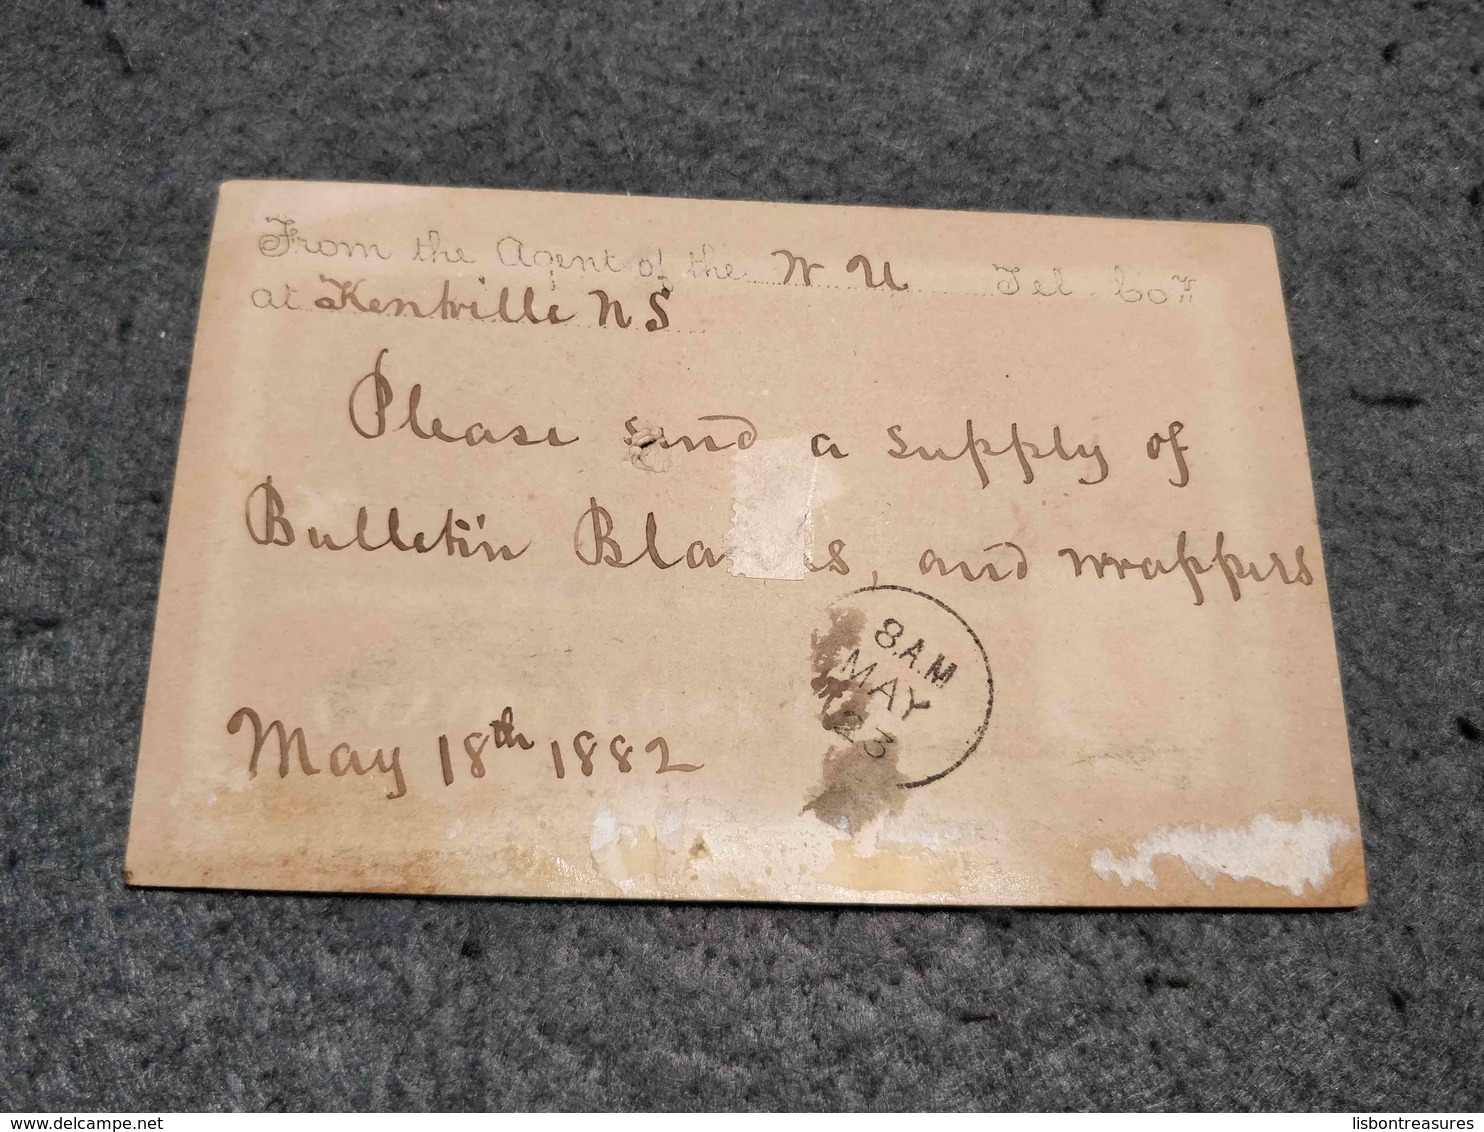 From the Agent of the W U Tel. Co'y
at Kentville N S
Please send a supply of
Bulletin Blanks, and wrappers
8 A.M
MAY
23
May 18th 1882
delcampe.net
lisbontreasures